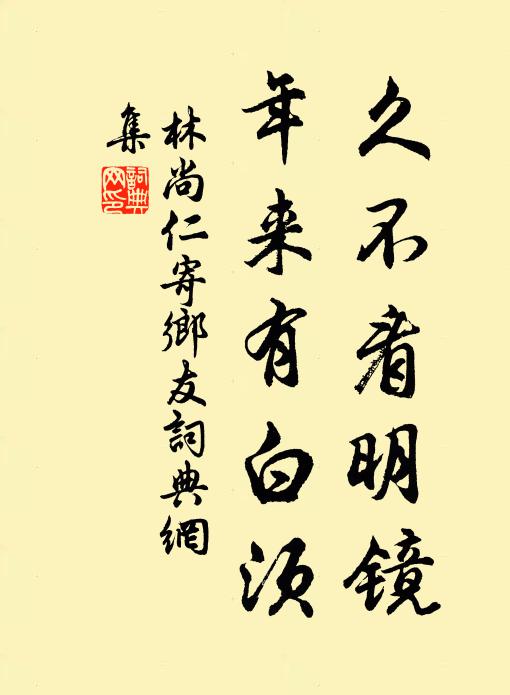 久不看明镜
年来有白须
林尚仁寄鄉友詞典網
集
詞典
网印